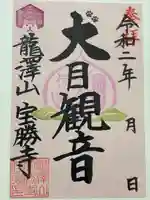 奉拝
令和二年 月 日
大目観音
龍澤山 宝勝寺